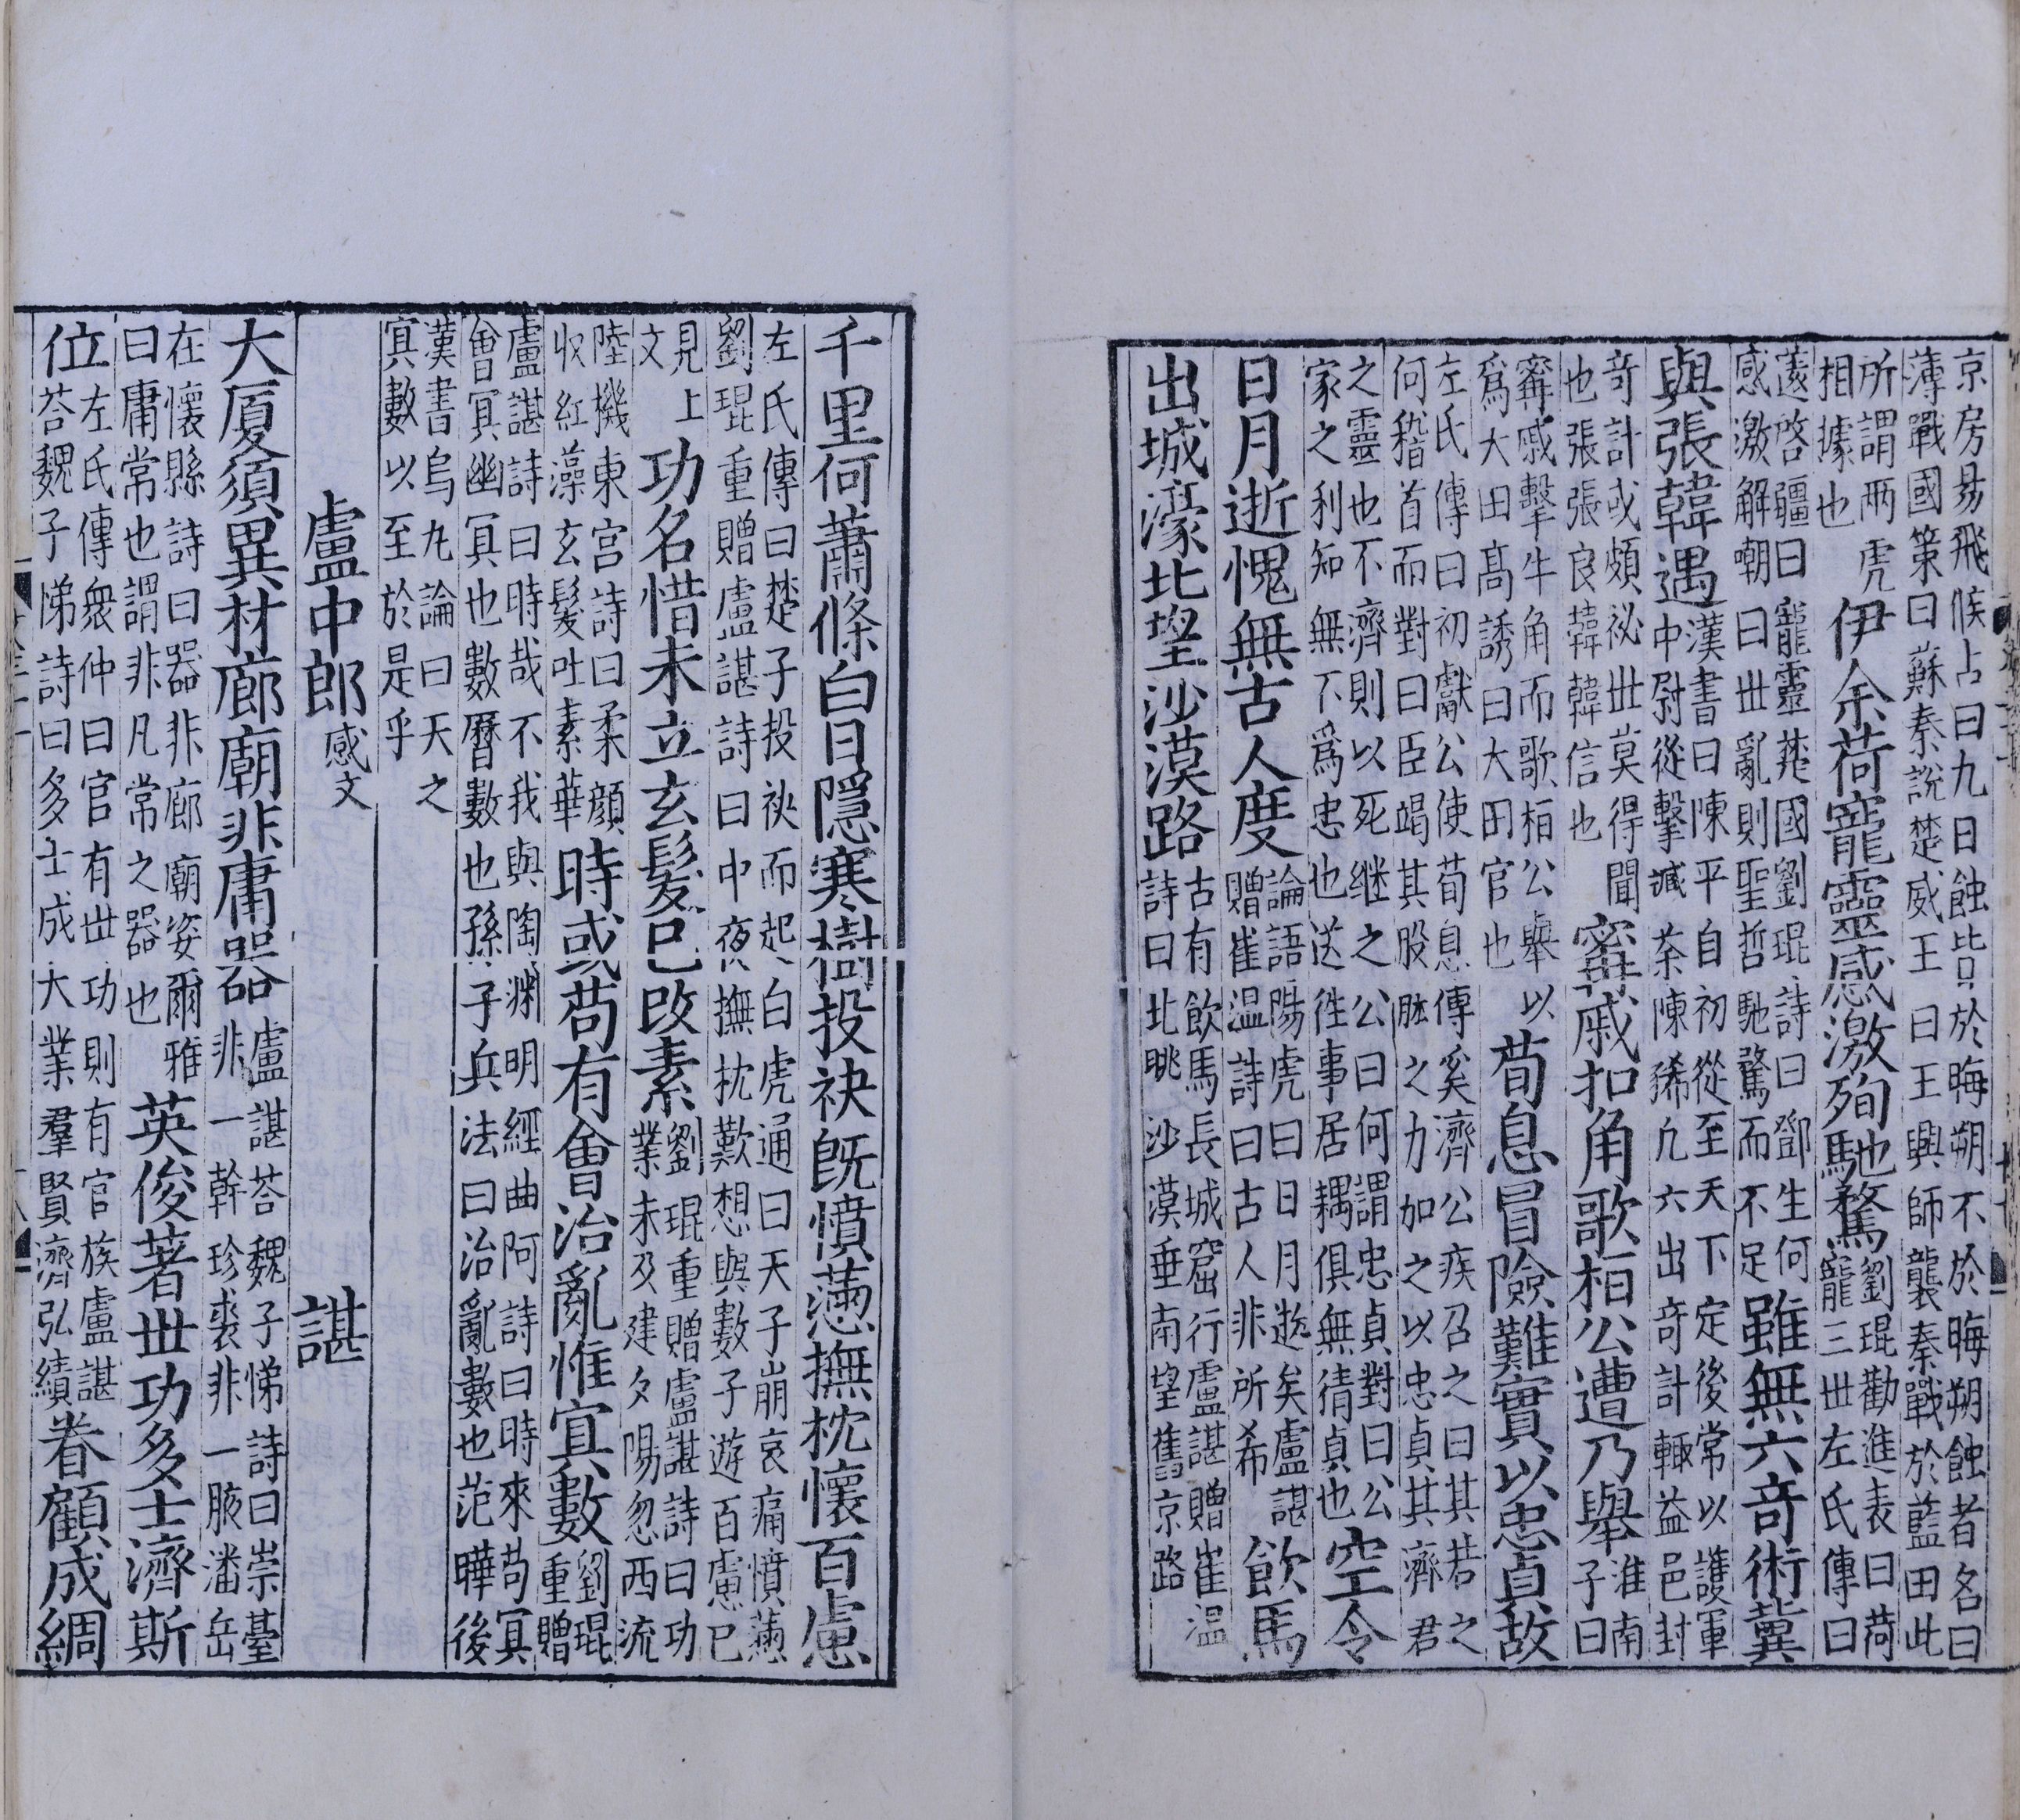 京房易飛候占曰九日蝕皆於晦朔不於晦朔蝕者名曰
薄戰國策曰蘇秦說楚威王曰王興師襲秦戰於藍田此
所謂兩虎
相據也
伊余荷寵靈感激殉馳騖
劉琨勸進表曰荷
寵三世左氏傳曰
薳啓疆曰寵靈楚國劉琨詩曰鄧生何
感激解嘲曰世亂則聖哲馳騖而不足
雖無六竒術冀
與張韓遇
漢書曰陳平自初從至天下定後常以護軍
中尉從擊臧荼陳豨凢六出竒計輒益邑封
竒計或頗祕世莫得聞
也張張良韓韓信也
甯戚扣角歌桓公遭乃舉
淮南
子曰
甯戚擊牛角而歌桓公舉以
爲大田髙誘曰大田官也
荀息冒險難實以忠貞故
左氏傳曰初獻公使荀息傅奚濟公疾召之曰其若之
何稽首而對曰臣竭其股肱之力加之以忠貞其濟君
之靈也不濟則以死継之公曰何謂忠貞對曰公
家之利知無不爲忠也送往事居耦俱無猜貞也
空令
日月逝愧無古人度
論語陽虎曰日月逝矣盧諶
贈崔温詩曰古人非所希
飲馬
出城濠北望沙漠路
古有飲馬長城窟行盧諶贈崔温
詩曰北眺沙漠垂南望舊京路
千里何蕭條白日隱寒樹投袂旣憤懣撫枕懷百慮
左氏傳曰楚子投袂而起白虎通曰天子崩哀痛憤懣
劉琨重贈盧諶詩曰中夜撫枕歎想與數子遊百慮已
見上
文
功名惜未立玄髮已改素
劉琨重贈盧諶詩曰功
業未及建夕陽忽西流
陸機東宫詩曰柔顔
收紅藻玄髮吐素華
時或苟有會治亂惟冥數
劉琨
重贈
盧諶詩曰時哉不我與陶渊明經曲阿詩曰時來苟冥
會冥幽冥也數曆數也孫子兵法曰治亂數也范曄後
漢書烏九論曰天之
冥數以至於是乎
盧中郎感文　諶
大厦須異材廊廟非庸器
盧諶荅魏子悌詩曰崇臺
非一幹珍裘非一腋潘岳
在懷縣詩曰器非廊廟姿爾雅
曰庸常也謂非凡常之器也
英俊著世功多士濟斯
位
左氏傳衆仲曰官有世功則有官族盧諶
荅魏子悌詩曰多士成大業羣賢濟弘績
眷顧成綢